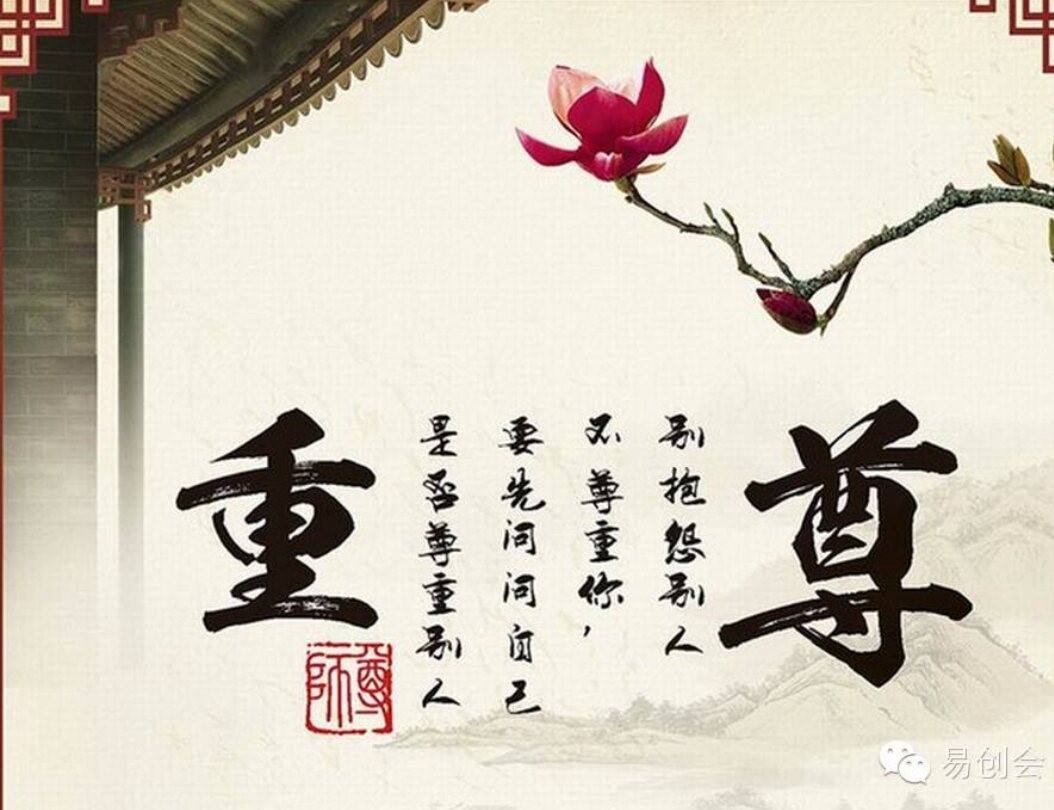 尊
别抱怨别人
不尊重你，
要先问问自己
是否尊重别人
重
尊師
易创会